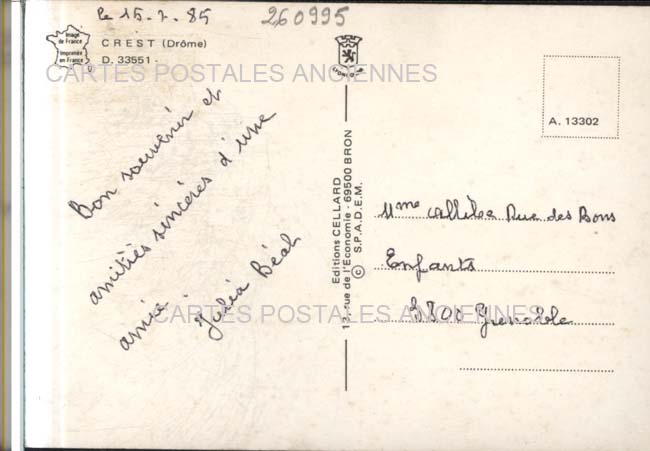 le 15.7.85
260995
Image
de France
Imprimée
en France
CREST (Drôme)
D. 33551
CARTES POSTALES ANCIENNES
Bon souvenir et
amitiés sincères d'une
amie.
Julia Béal
Editions CELLARD
rue de l'Economie - 69500 BRON
© S.P.A.D.E.M.
A. 13302
Mme Rue des Bons
Enfants
Grenoble
CARTES POSTALES ANCIENNES